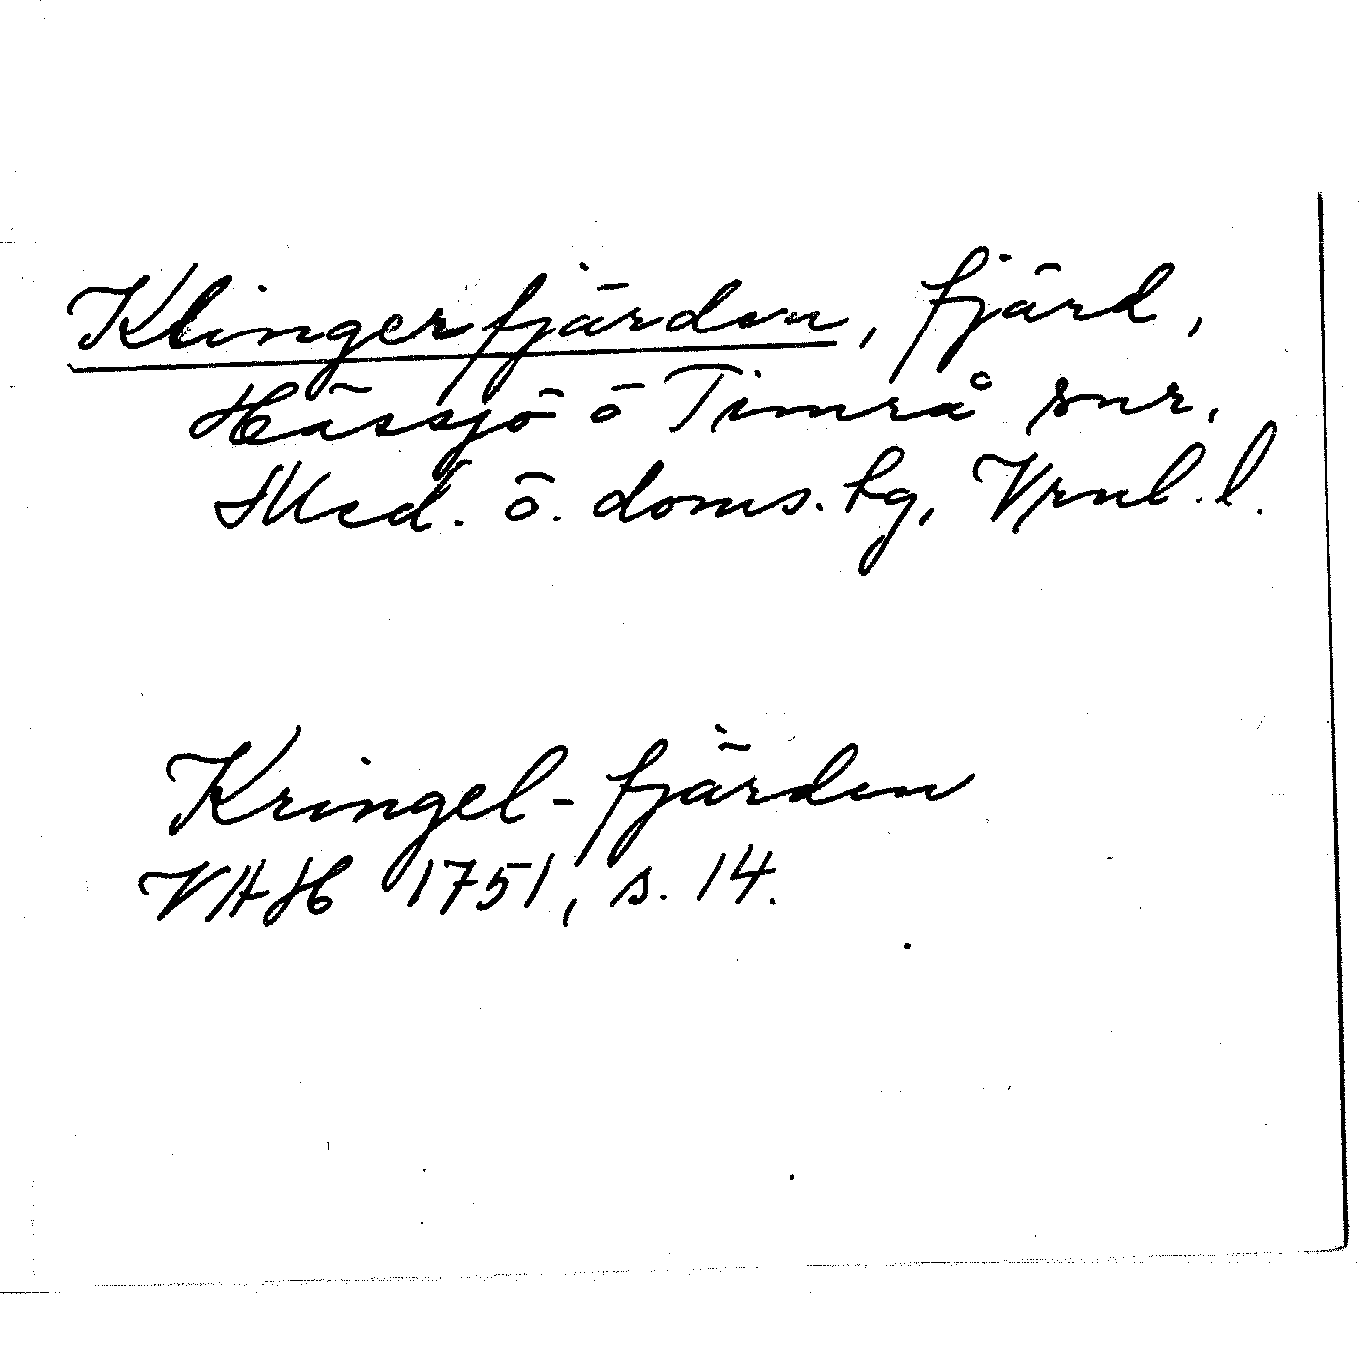 Klingerfjärden, fjärd,
Hässjö o Timrå snr,
Med. ö. doms. hg, Vrnl. l.
Kringel-fjärden
VHH 1751, s. 14.